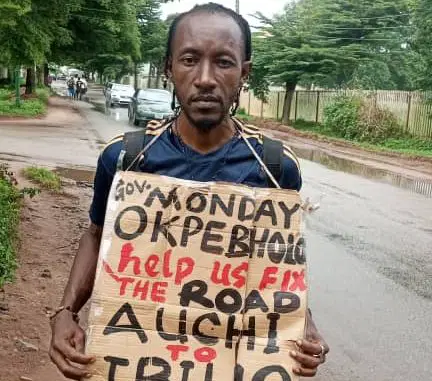 GOV. MONDAY
OKPEBHOLO
help us FIX
THE ROAD
AUCHI
TO
IBILLO